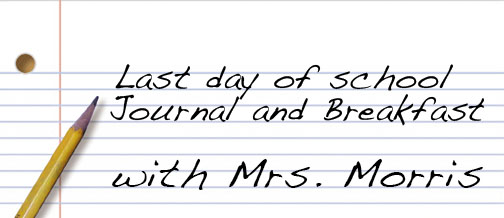 Last day of school
Journal and Breakfast
with Mrs. Morris